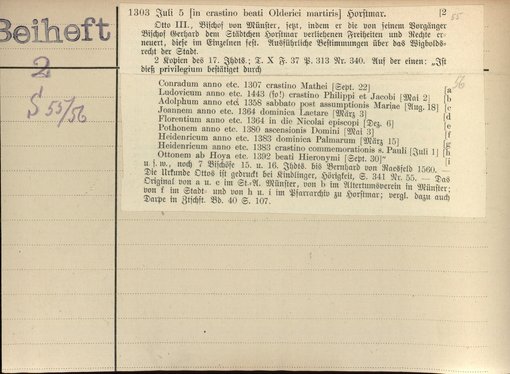 Beiheft
2
S 55/56
1303 Juli 5 [in crastino beati Olderici martiris] Horstmar. [2
55
Otto III., Bischof von Münster, setzt, indem er die von seinem Vorgänger
Bischof Gerhard dem Städtchen Horstmar verliehenen Freiheiten und Rechte er-
neuert, diese im Einzelnen fest. Ausführliche Bestimmungen über das Wigbolds-
recht der Stadt.
2 Kopien des 17. Jhdts.; T. X F. 37 P. 313 Nr. 340. Auf der einen: „Ist
dieß privilegium bestätiget durch
56
Conradum anno etc. 1307 crastino Mathei [Sept. 22] [a
Ludovicum anno etc. 1443 (so!) crastino Philippi et Jacobi [Mai 2] [b
Adolphum anno etc. 1358 sabbato post assumptionis Mariae [Aug. 18] [c
Joannem anno etc. 1364 dominica Laetare [März 3] [d
Florentium anno etc. 1364 in die Nicolai episcopi [Dez. 6] [e
Pothonem anno etc. 1380 ascensionis Domini [Mai 3] [f
Heidenricum anno etc. 1383 dominica Palmarum [März 15] [g
Heidenricum anno etc. 1383 crastino commemorationis s. Pauli [Juli 1] [h
Ottonem ab Hoya etc. 1392 beati Hieronymi [Sept. 30]“ [i
u. s. w., noch 7 Bischöfe 15. u. 16. Jhdts. bis Bernhard von Raesfeld 1560. —
Die Urkunde Ottos ist gedruckt bei Kindlinger, Hörigkeit, S. 341 Nr. 55. — Das
Original von a u. c im St.-A. Münster, von b im Altertumsverein in Münster;
von f im Stadt- und von h u. i im Pfarrarchiv zu Horstmar; vergl. dazu auch
Darpe in Ztschft. Bd. 40 S. 107.